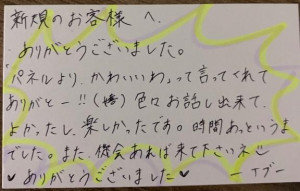 新規のお客様へ
ありがとうございました。
パネルより、かわいいわ、って言ってくれて
ありがとー!!(嬉) 色々お話し出来て、
よかったし、楽しかったです。時間あっというま
でした。また、機会あれば来て下さいネ
♥ありがとうございました♥